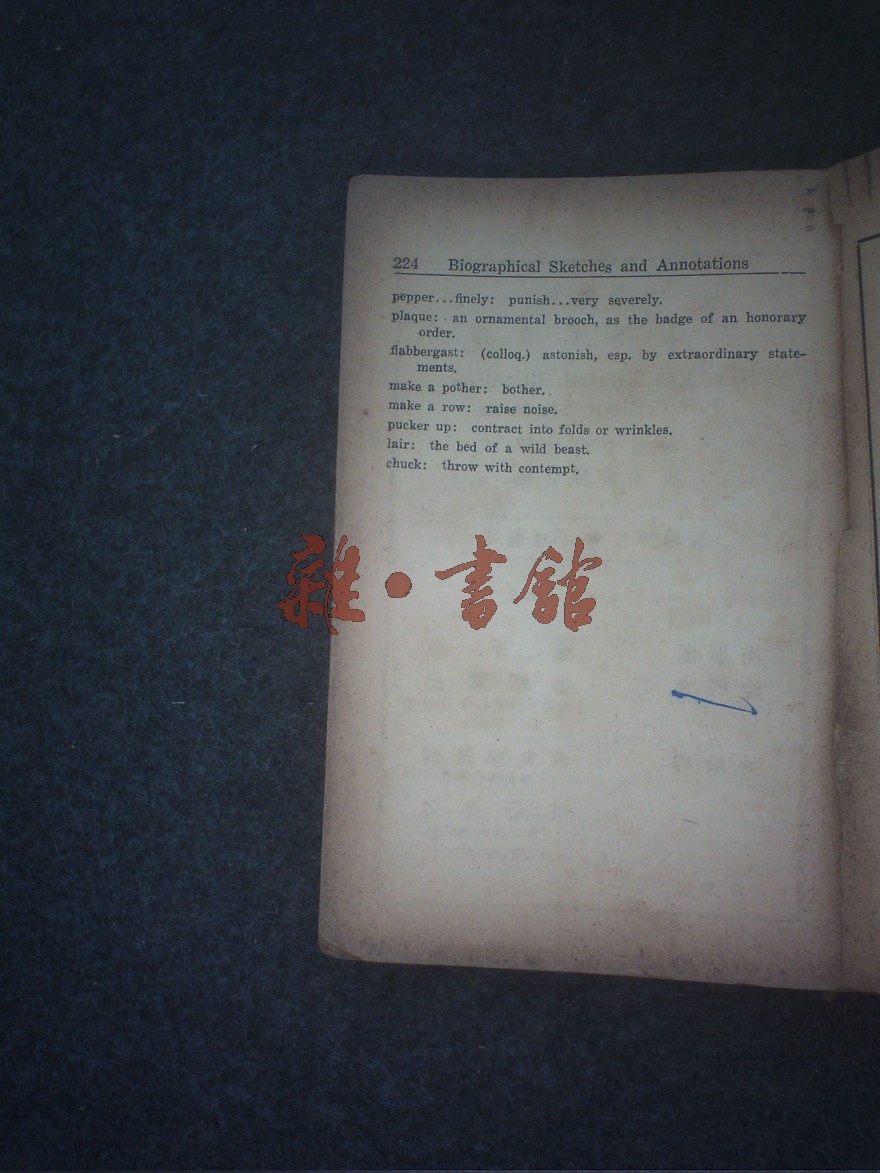 224 Biographical Sketches and Annotations
pepper...finely: punish...very severely.
plaque: an ornamental brooch, as the badge of an honorary
order.
flabbergast: (colloq.) astonish, esp. by extraordinary state-
ments.
make a pother: bother.
make a row: raise noise.
pucker up: contract into folds or wrinkles.
lair: the bed of a wild beast.
chuck: throw with contempt.
雜·書館